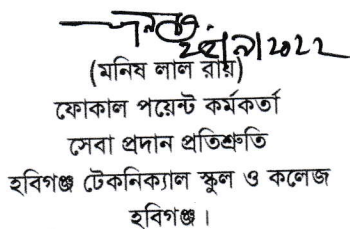 (মনিষ লাল রায়)
ফোকাল পয়েন্ট কর্মকর্তা
সেবা প্রদান প্রতিশ্রুতি
হবিগঞ্জ টেকনিক্যাল স্কুল ও কলেজ
হবিগঞ্জ।